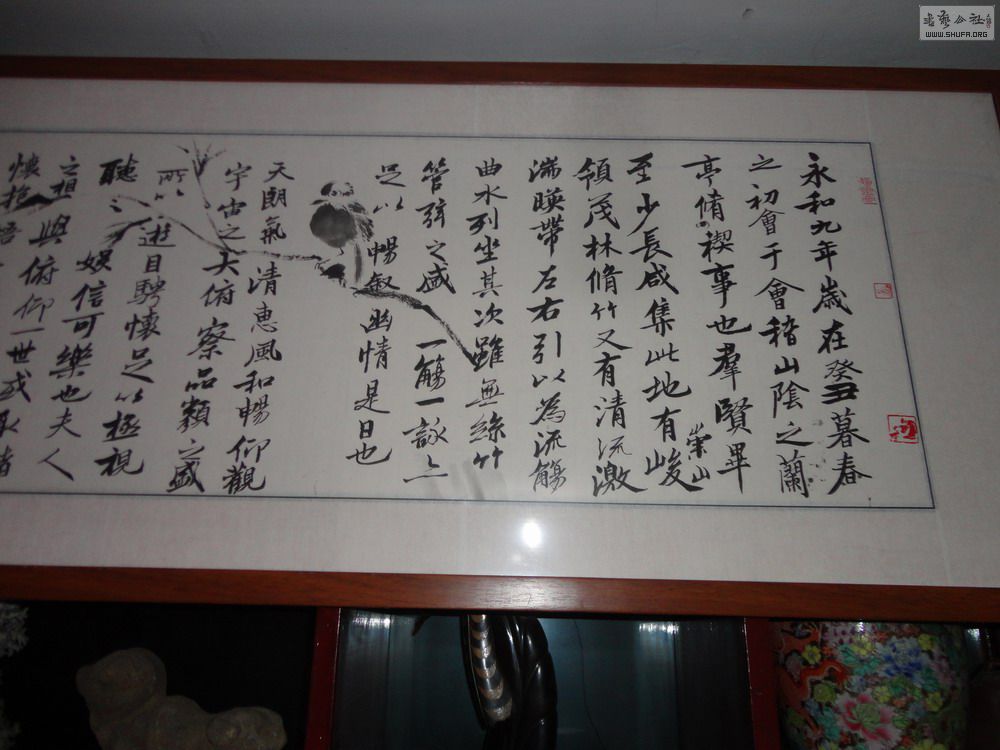 永和九年歲在癸丑暮春
之初會于會稽山陰之蘭
亭脩禊事也羣賢畢
至少長咸集此地有崇山峻
領茂林脩竹又有清流激
湍暎帶左右引以為流觴
曲水列坐其次雖無絲竹
管弦之盛一觴一詠亦
足以暢敘幽情是日也
天朗氣清惠風和暢仰觀
宇宙之大俯察品類之盛
所以遊目騁懷足以極視
聽之娛信可樂也夫人
之相與俯仰一世或取諸
懷抱悟
書藝公社
WWW.SHUFA.ORG